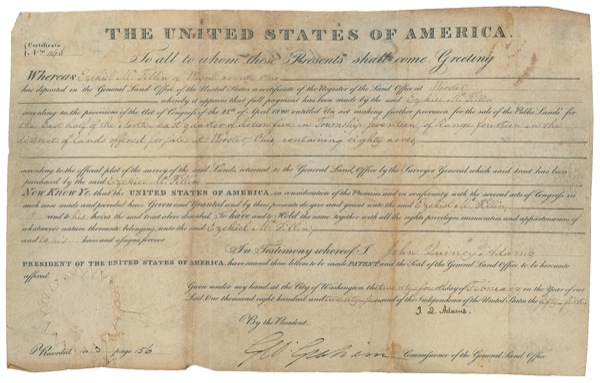 THE UNITED STATES OF AMERICA.
Certificate
No.
To all to whom these Presents shall come, Greeting
Whereas Ezekiel McKillin of County Ohio
has deposited in the General Land Office of the United States a certificate of the Register of the Land Office at Wooster
whereby it appears that full payment has been made by the said Ezekiel McKillin
according to the provisions of the Act of Congress of the 24th of April 1820 entitled An act making further provision for the sale of the Public Lands for
the East half of the North east quarter of Section five in Township seventeen of Range fourteen in the
district of Lands offered for sale at Wooster, Ohio, containing Eighty acres
according to the official plat of the survey of the said Lands returned to the General Land Office by the Surveyor General, which said tract has been
purchased by the said Ezekiel McKillin
Now Know Ye, that the UNITED STATES OF AMERICA, in consideration of the Premises and in conformity with the several acts of Congress in
such case made and provided have Given and Granted and by these presents do give and grant unto the said Ezekiel McKillin
and to his heirs the said tract above described: To have and to Hold the same together with all the rights privileges immunities and appurtenances of
whatsoever nature thereunto belonging unto the said Ezekiel McKillin
and to his heirs and assigns forever
In Testimony whereof I John Quincy Adams
PRESIDENT OF THE UNITED STATES OF AMERICA, have caused these letters to be made PATENT and the Seal of the General Land Office to be hereunto
affixed.
Given under my hand at the City of Washington the twenty day of February in the Year of our
Lord One thousand eight hundred and twenty and of the Independence of the United States the
J. Q. Adams
By the President.
Commissioner of the General Land Office
Recorded page 156